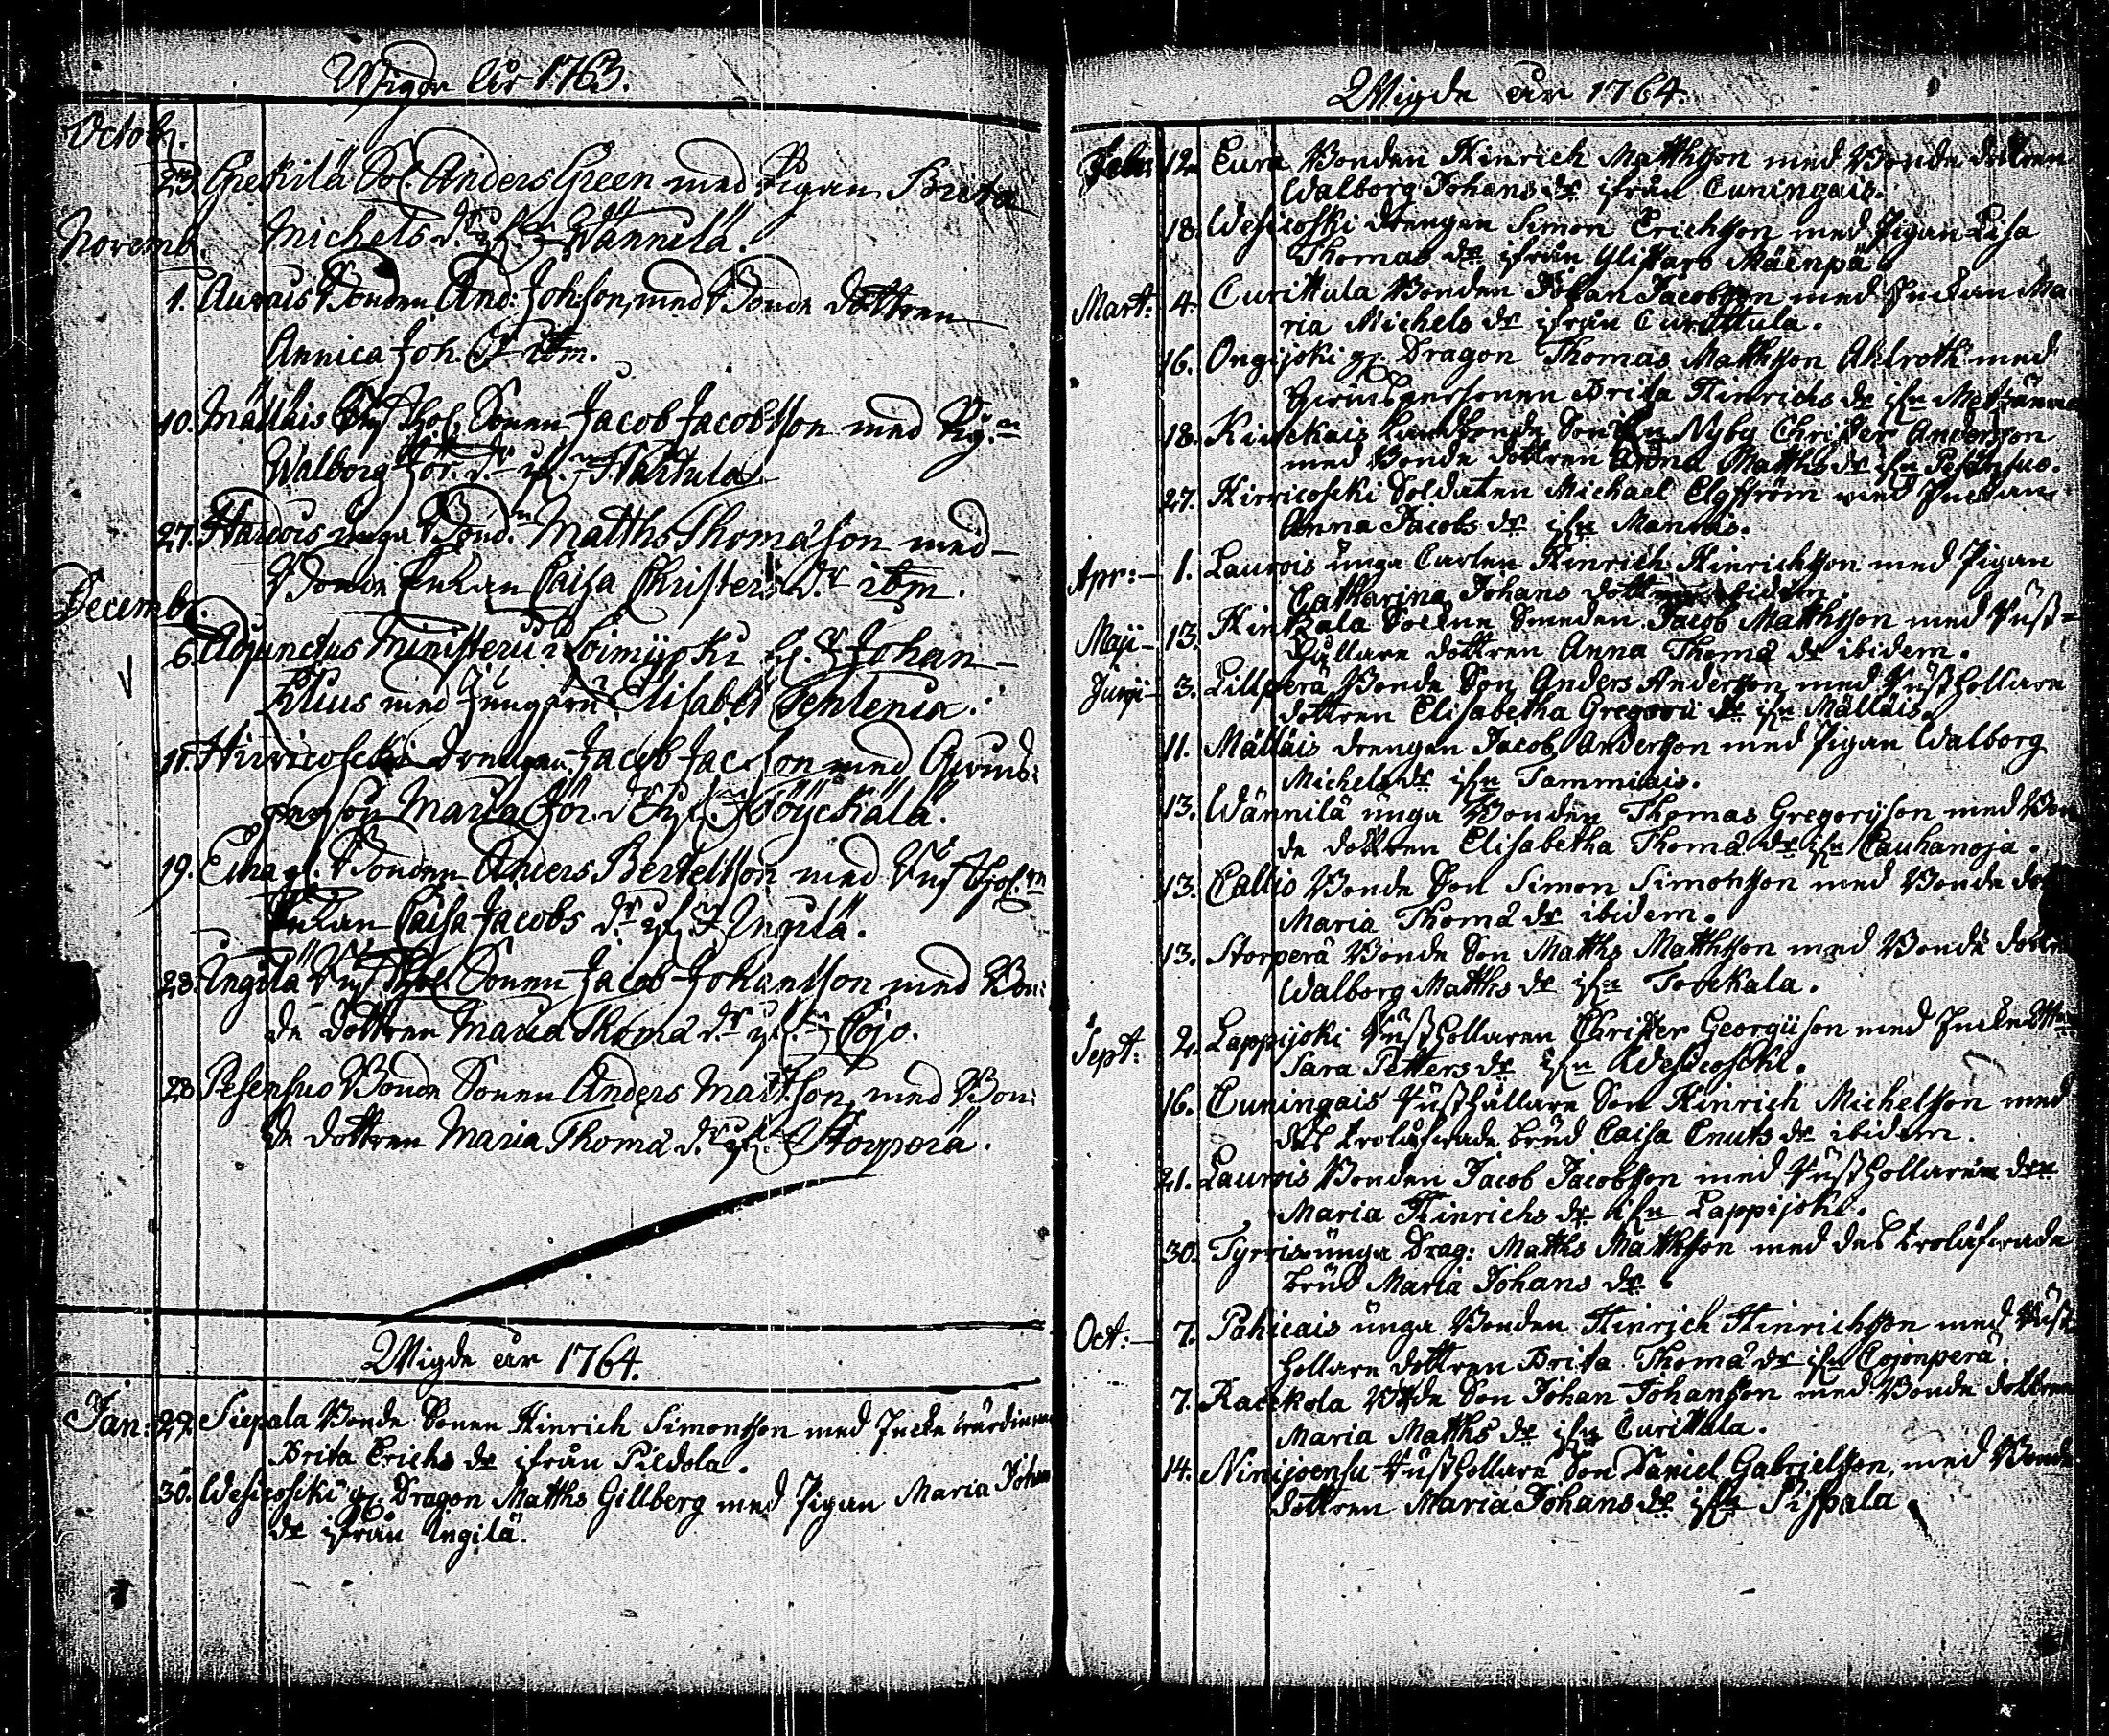 Wigde År 1763.
Octob.
23. Grekilä Sol. Anders Green med Pigan Brita
Novemb. Michels dr ifrn Wännilä.
1. Aurais Bonden And: Johson, med Bonde dottren
Annica Joh. dr ibm.
10. Mälläis Rusthol. Sonen Jacob Jacobsson med Pig:n
Walborg Jör. dr ifrn Härtula.
27. Harvois unga Bond:n Matths Thomasson med
Bonde Enkan Caisa Christers dr ibm.
Decemb.
6. Adjunctus Ministerii i Loimijoki H. Hr Johan
Filius med Jungfru Elisabet Tehlenia.
11. Hirvicoscki drengen Jacob Jacobsson med Qvins-
person Maria Jör. dr ifrn Höyckälä.
19. Eura gl. Bonden Anders Bertelsson med Rusthol:re
Enkan Caisa Jacobs dr ifrn Ingilä.
28. Ingilä Rusthol. Sonen Jacob Johansson med Bon-
de dottren Maria Thomæ dr ifrn Cojo.
28 Pesensuo Bonde Sonen Anders Mattson, med Bon-
de dottren Maria Thomæ dr ifrn Storperä.
Wigde år 1764.
Jan: 29. Siepala Bonde Sonen Hinrich Simonsson med Encke wärdinnan
Brita Erichs dr ifrån Pildola.
30. Wesicoscki gl. Dragon Matths Gillberg med Pigan Maria Johans
dr ifrån Ingilä.
Wigde år 1764.
Febr: 12. Eura Bonden Hinrich Matthsson med Bonde dottren
Walborg Johans dr ifrån Cuningais.
18. Wesicoski drengen Simon Erichsson med Pigan Lisa
Thomas dr ifrån Ylistaro Mäenpä.
Mart: 4. Curittula Bonden Johan Jacobsson med Enckan Ma-
ria Michels dr ifrån Curittula.
16. Ongijoki gl. Dragon Thomas Matthsson Ahlroth med
Qvinspersonen Brita Hinrichs dr ifrn
18. Landbonde Son ifrn Nyby Christer Andersson
med Bonde dottren Anna Matths dr ifrn Pesänsuo.
27. Hirvicoscki Soldaten Michael Elgström med Enckan
Anna Jacobs dr ifrn Mannis.
Apr: 1. Laurois unga Carlen Hinrich Hinrichsson med Pigan
Catharina Johans dotter ibidem.
Maji 13. Sockne Smeden Jacob Matthsson med Rust-
hållare dottren Anna Thomæ dr ibidem.
Junij 3. Lillperä Bonde Son Anders Andersson med Rusthollare
dottren Elisabetha Gregorii dr ifrn Mälläis.
11. Mälläis drengen Jacob Andersson med Pigan Walborg
Michels dr ifrn Tammiais.
13. Wännilä unga Bonden Thomas Gregorijson med Bon-
de dottren Elisabetha Thomæ dr ifrn Cauhanoja.
13. Callio Bonde Son Simon Simonsson med Bonde
Maria Thomæ dr ibidem.
13. Storperä Bonde Son Matths Matthsson med Bonde dottren
Walborg Matths dr ifrn Torckala.
Sept: 2. Lappijoki Rusthollaren Christer Georgiison med
Sara Petters dr ifrn Wesicoscki.
16. Cuningais Rusthållare Son Hinrich Michelsson med
des trolåfwade brud Caisa Cnuts dr ibidem.
21. Laurois Bonden Jacob Jacobsson med Rusthollaren dtn
Maria Hinrichs dr ifrn Lappijoki.
30. Tyrris unga Drag: Matths Matthsson med des trolåfwade
brud Maria Johans dr.
Oct: 7. Pahicais unga Bonden Hinrich Hinrichsson med Rust
hollare dottren Brita Thomæ dr ifrn Cojonperä.
7. Raeckola Bonde Son Johan Johansson med Bonde dottren
Maria Matths dr ifrn Curittula.
14. Ninijoensu Rusthollare Son Daniel Gabrielsson, med Bonde
dottren Maria Johans dr ifrn Pispala.